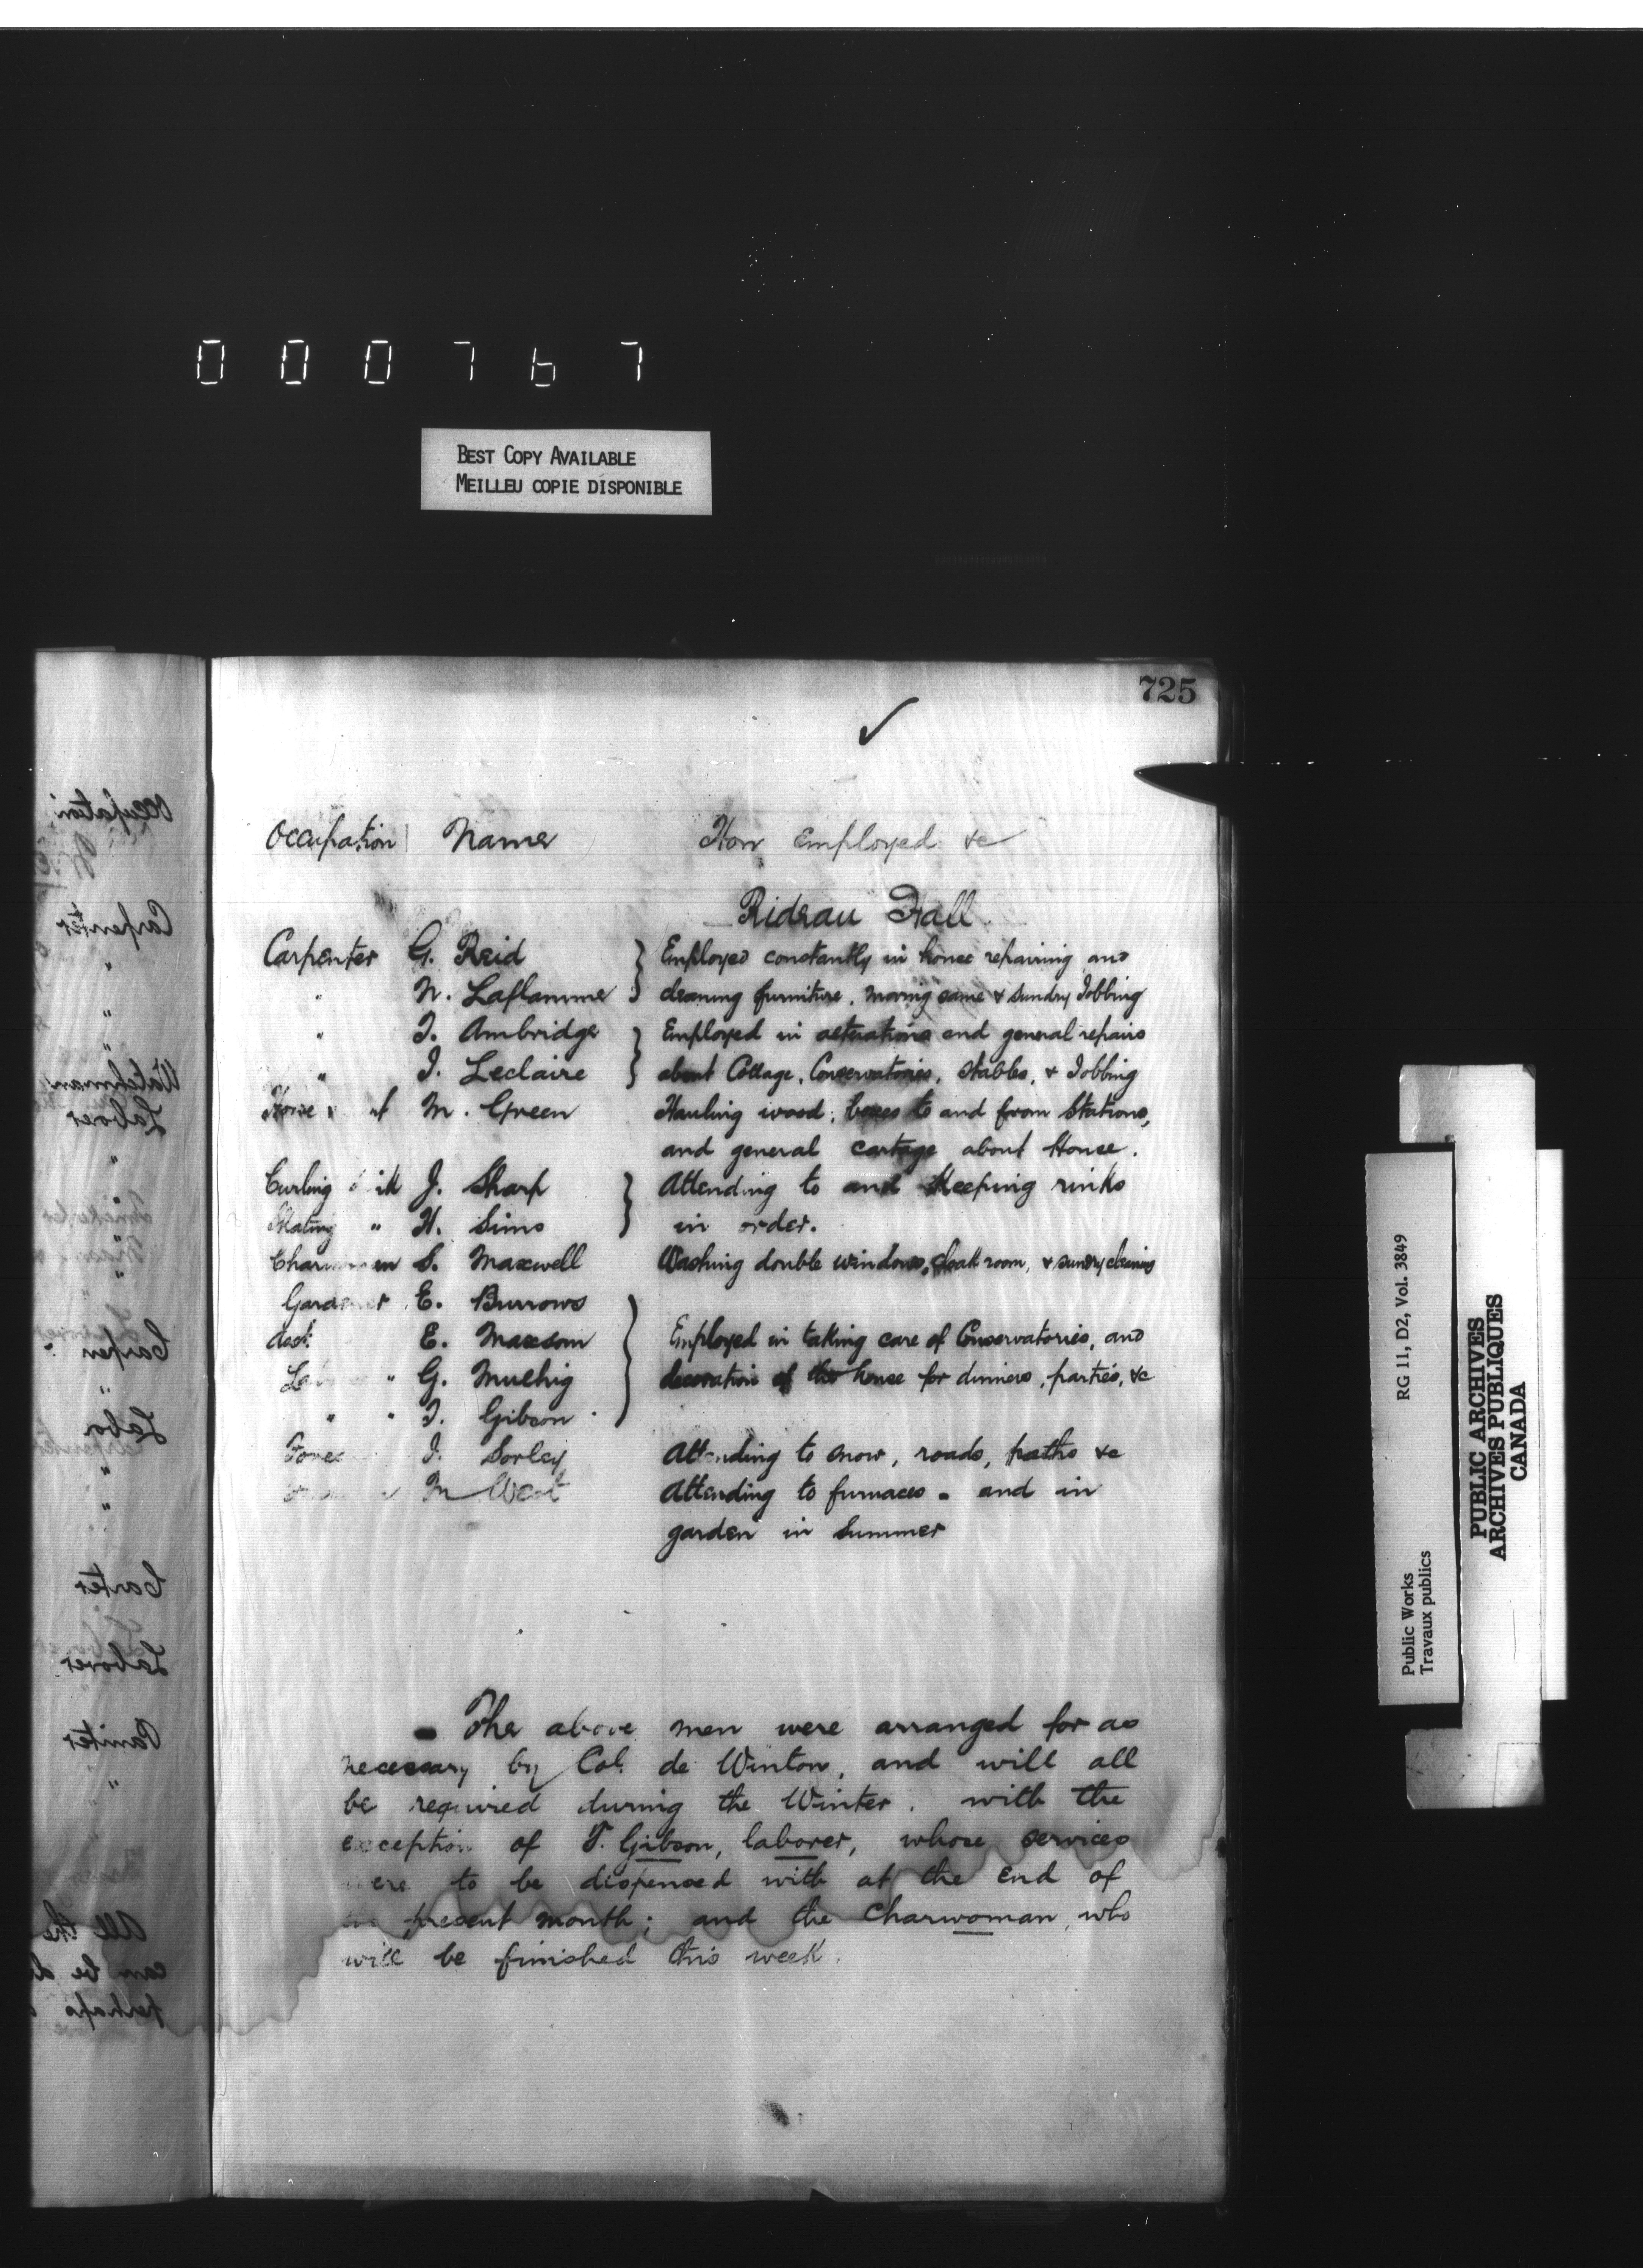 000767
BEST COPY AVAILABLE
MEILLEU COPIE DISPONIBLE
725
✓
Occupation Names How Employed &c
Rideau Hall
Carpenter G. Reid } Employed constantly in house repairing and
" N. Laflamme } cleaning furniture, moving same & sundry Jobbing
" T. Ambridge } Employed in alterations and general repairs
" J. Leclaire } about Cottage, Conservatories, Stables, & Jobbing
Horse M. Green Hauling wood, boxes to and from Stations,
and general cartage about House.
Curling J. Sharp } Attending to and Keeping rinks
Skating " H. Sims } in order.
S. Maxwell Washing double windows, cloak room, & sundry cleaning
Gardener E. Burrows
E. Maxsom Employed in taking care of Conservatories, and
" G. Muchig decoration of the house for dinners, parties, &c
" " T. Gibson
J. Sorley Attending to snow, roads, paths &c
M West Attending to furnaces - and in
garden in Summer
The above men were arranged for as
necessary by Col. de Winton, and will all
be required during the Winter, with the
exception of T. Gibson, laborer, whose services
were to be dispensed with at the end of
the present month; and the Charwoman, who
will be finished this week.
Occupation
Carpenter
"
"
"
Watchman
Laborer
"
Carpen
"
Labo
"
"
Carter
Laborer
Painter
"
All the
can be d
perhaps
Public Works
Travaux publics
RG 11, D2, Vol. 3849
PUBLIC ARCHIVES
ARCHIVES PUBLIQUES
CANADA